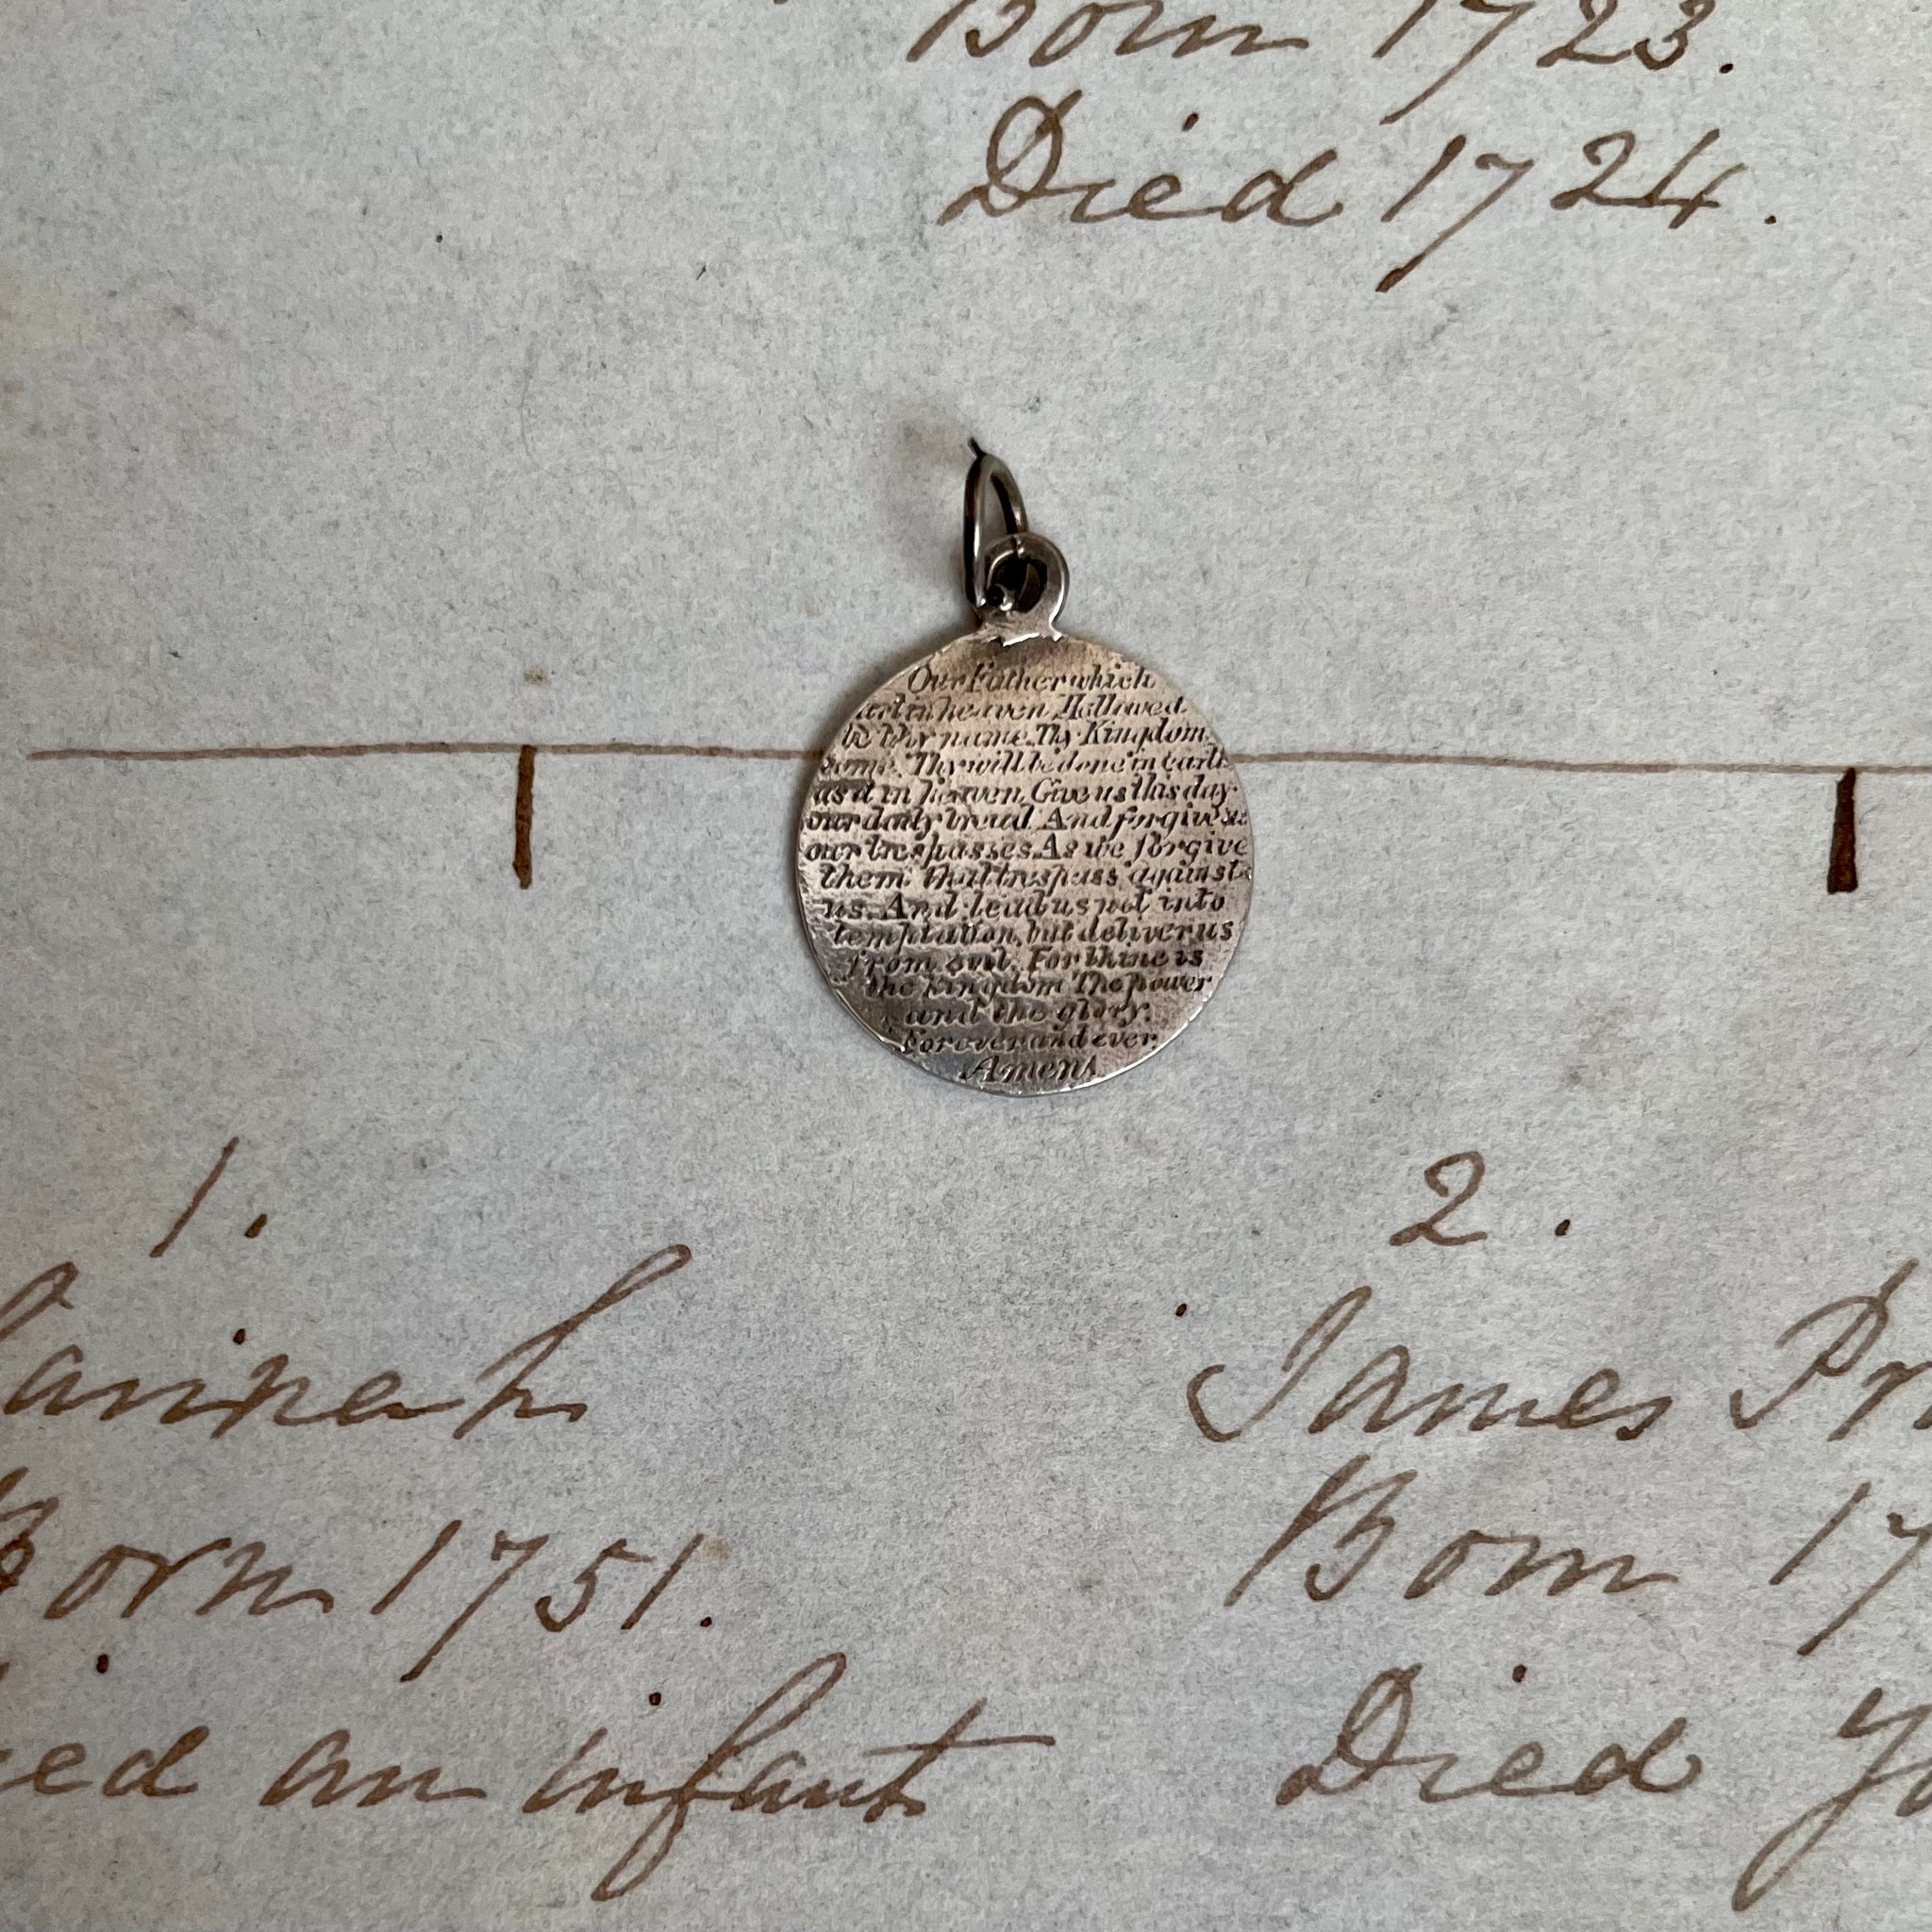 Born 1723.
Died 1724.
Our Father which
art in heaven Hallowed
be thy name. Thy Kingdom
come. Thy will be done in earth
as it in heaven. Give us this day
our daily bread And forgive us
our trespasses. As we forgive
them that trespass against
us. And lead us not into
temptation, but deliver us
from evil. For thine is
the kingdom The power
and the glory.
For ever and ever.
Amen
1.
2.
James Pr
Born 1751.
Born 17
ed an infant
Died Yo